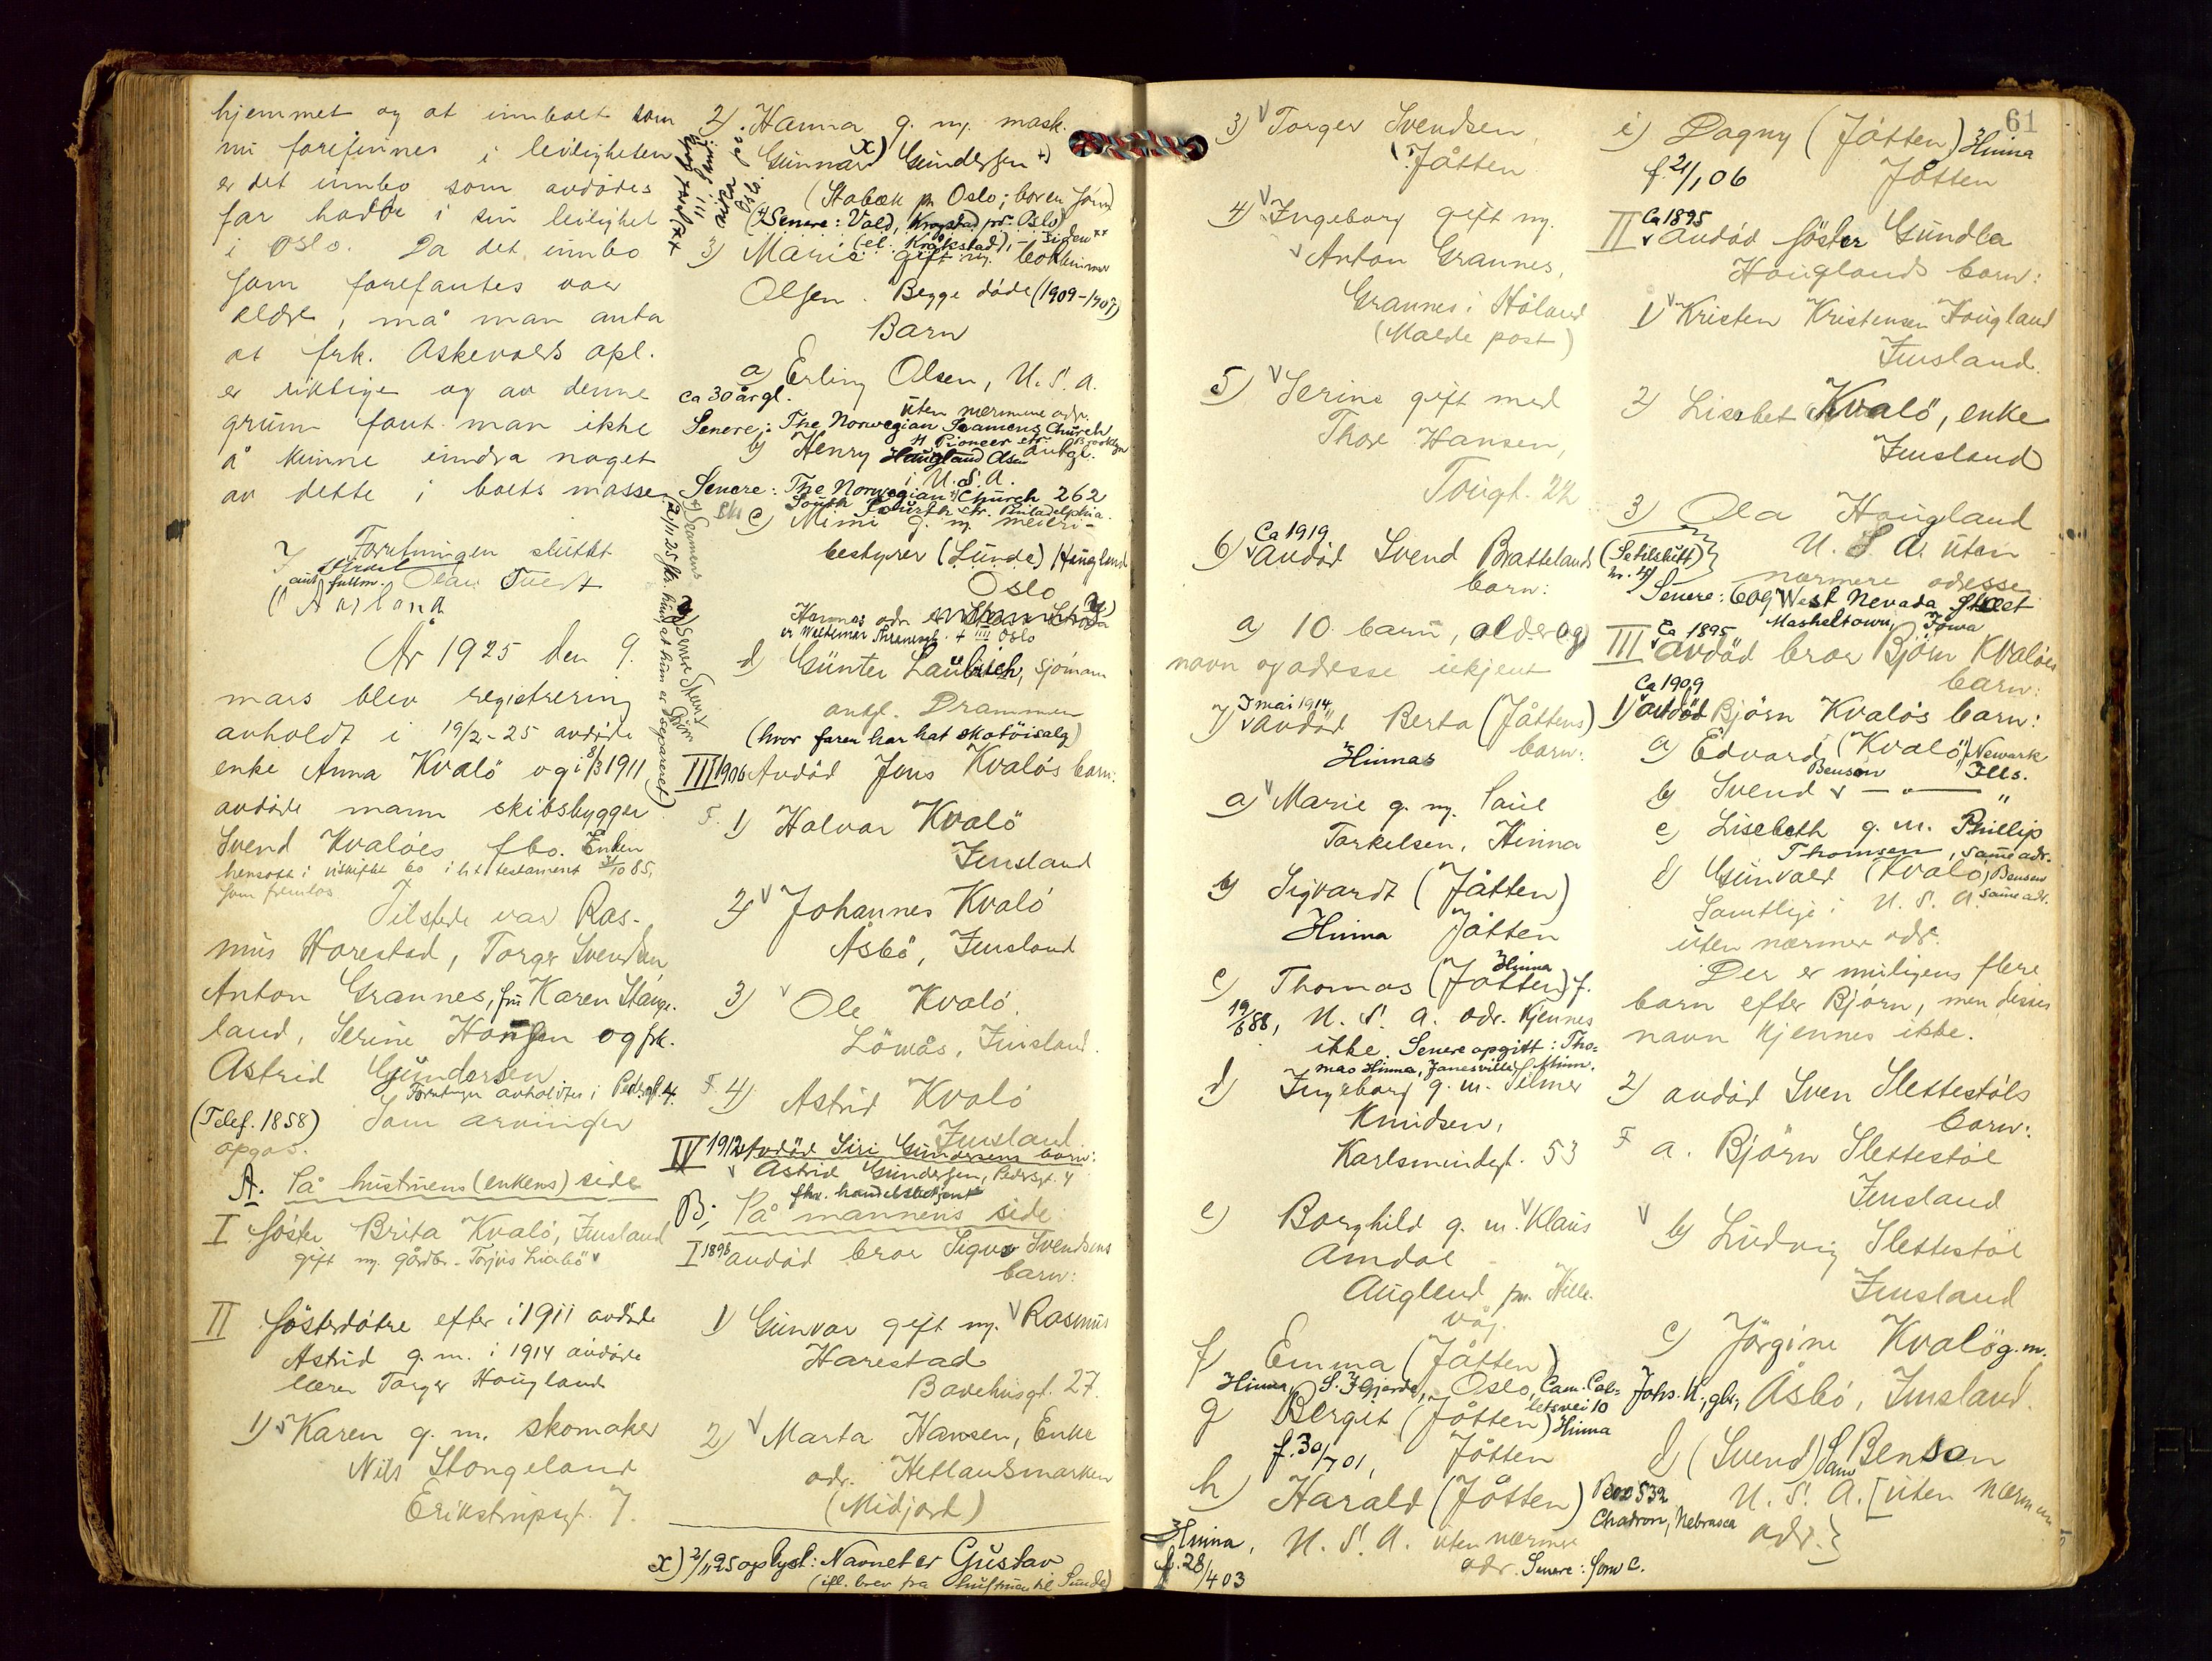 hjemmet og at innboet som
nu forefinnes i leiligheten
er det innbo som avdødes
far hadde i sin leilighet
i Oslo. Da det innbo
som forefantes var
eldre, må man anta
at frk. Askevolds opl.
er riktige og av denne
grunn fant man ikke
å kunne inndra noget
av dette i boets masse
Forretningen sluttet
Olav Tvedt
aut. fullm.
År 1925 den 9.
mars blev registrering
avholdt i 19/2-25 avdøde
enke Anna Kvalö og i 8/3 1911
avdøde mann skibsbygger
Svend Kvalöes fbo. Enken
hensatt i uskiftet bo i h.t. testament 3/10 85,
som fremlas
Tilstede var Ras-
mus Harestad, Torger Svendsen,
Anton Grannes, fru Karen Stange-
land, Serine Hansen og frk.
Astrid Gundersen
Forretningen avholdtes i Pedersgt. 4.
(Telef. 1858) Som arvinger
opgas:
A. På hustruens (enkens) side
I Söster Brita Kvalö, Finsland
gift m. gårdbr. Torjus Liabö
II Sösterdötre efter i 1911 avdøde
Astrid g. m. i 1914 avdøde
lærer Torger Hougland
1) Karen g. m. skomaker
Nils Stangeland
Erikstrupsgt. 7.
2) Hanna g. m. mask.
Gunnar x) Gundersen +)
(Stabæk pr. Oslo; boren Jöns)
(+ Senere: Vald, Krogstad pr. Oslo)
(el. Kråkstad), - siden **
3) Marie gift m. Bokbinner
Olsen. Begge döde (1909-1907)
Barn
a) Erling Olsen, U.S.A.
Ca 30 år gl. uten nærmere adr.
Senere: The Norwegian Seamens Church
11 Pioneer str. Brooklyn
b) Henry Haugland Olsen antgl.
i U.S.A.
Senere: The Norwegian Church 262
South Fourth str. Philadelphia.
c) Mimi g. m. meieri-
bestyrer (Lunde) Haugland
Oslo
Hannas adr.
er Waldemar Thranesgt. + IIII Oslo
d) Günter Laubich, sjömann
antgl. Drammen
(hvor faren har hat skotöisalg)
III 1906 Avdöd Jens Kvalös barn:
F. 1) Halvar Kvalö
Finsland
2) Johannes Kvalö
Åsbö, Finsland
3) Ole Kvalö.
Lömås, Finsland.
F. 4) Astrid Kvalö
Finsland.
IV 1912 Avdöd Siri Gundersens barn:
Astrid Gundersen, Pedersgt. 4
fhv. handelsbetjent
B; På mannens side
I 1898 avdöd bror Sigve Svendsens
barn:
1) Gunvar gift m. Rasmus
Harestad
Bavehusgt. 27.
2) Marta Hansen, Enke
adr. Hetlandsmarken
(Midjord)
x) 2/11 25 oplyst: Navnet er Gustav
(ifl. brev fra hustruen til Lunde)
61
3) Torger Svendsen
Jåtten
4) Ingeborg gift m.
Anton Grannes,
Grannes i Håland
(Malde post)
5) Serine gift med
Thore Hansen,
Tougt. 22
6) Ca 1919 avdöd Svend Brattelands
barn:
a) 10 barn, alder og
navn og adresse ukjent
7) 3 mai 1914, avdöd Berta (Jåttens)
Hinnas barn:
a) Marie g. m. Paul
Torkelsen, Hinna
b) Sigvardt (Jåtten)
Hinna Jåtten
c) Thomas (Jåtten) Hinna f.
19/6 88, U.S.A. adr. kjennes
ikke. Senere opgitt: Tho-
mas Hinna, Janesville, Minn.
d) Ingeborg g. m. Tilmer
Knudsen,
Karlsmindegt. 53
e) Borghild g. m. Klaus
Amdal
Auglend pr. Hille-
våg.
f) Emma (Jåtten)
Hinna, Oslo, Cam. Col-
letsvei 10
g) Bergit (Jåtten) Hinna
f. 30/7 01, Jåtten
h) Harald (Jåtten)
Hinna, U.S.A. uten nærmere
f. 28/4 03 adr. Senere: som c.
i) Dagny (Jåtten) Hinna
f. 21/1 06 Jåtten
II Ca 1895 avdöd söster Gundla
Houglands barn:
1) Kristen Kristensen Hougland
Finsland.
2) Lisabet Kvalö, enke
Finsland
3) Ola Hougland
U.S.A. uten
nærmere adresse
Senere: 609 West Nevada Street
Masheltown, Iowa
III Ca 1895 avdöd bror Björn Kvalöes
barn:
1) Ca 1909 avdöd Björn Kvalös barn:
a) Edvard (Kvalö) Newark
Benson Ills.
b) Svend — " — "
c) Lisebeth g. m. Phillip
Thomsen, samme adr.
d) Gunvald (Kvalö) Benson
samme adr.
Samtlige i U.S.A.
uten nærmere adr.
Der er muligens flere
barn efter Björn, men disses
navn kjennes ikke.
2) avdöd Sven Slettestöls
barn:
F a. Björn Slettestöl
Finsland
b) Ludvig Slettestöl
Finsland
c) Jörgine Kvalö g. m.
Johs. K., gbr., Åsbö, Finsland.
d) (Svend) Sam Benson
Box 532 U.S.A. [uten nærmere
Chadron, Nebrasca adr.}